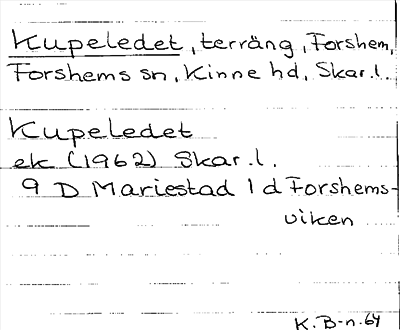 Kupeledet, terräng, Forshem,
Forshems sn, Kinne hd, Skar.l.
Kupeledet
ek (1962) Skar.l.
9 D Mariestad 1 d Forshems-
viken
K.B-n.64